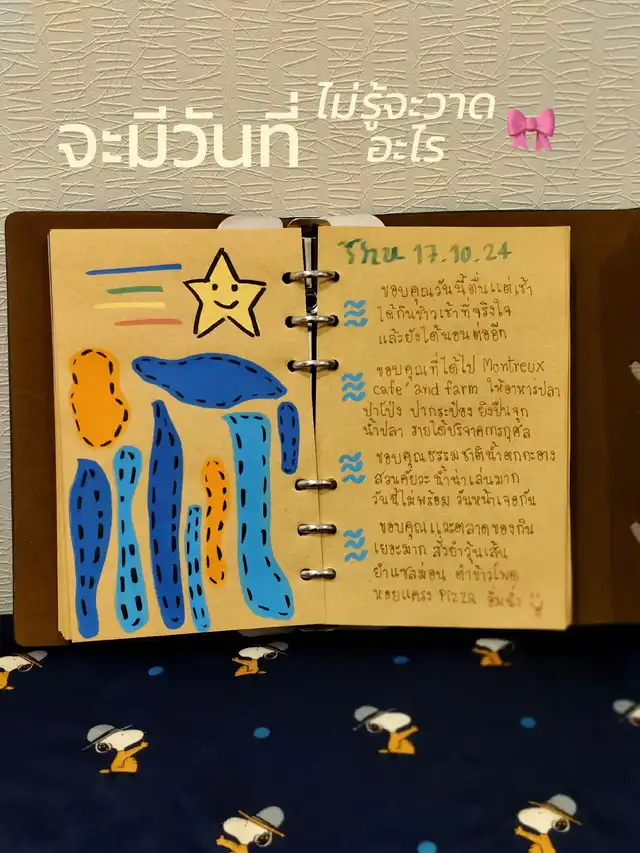 จะมีวันที่ ไม่รู้จะวาด
อะไร
Thu 17.10.24
ขอบคุณวันนี้ตื่นแต่เช้า
ได้กินข้าวเช้าที่จริงใจ
แล้วยังได้นอนต่ออีก
ขอบคุณที่ได้ไป Montreux
café and farm ให้อาหารปลา
ปาโป่ง ปากระป๋อง ยิงปืนจุก
น้ำปลา รายได้บริจาคการกุศล
ขอบคุณธรรมชาติน้ำตกกะอาง
สวนคัยวะ น้ำน่าเล่นมาก
วันนี้ไม่พร้อม วันหน้าเจอกัน
ขอบคุณแวะตลาดของกิน
เยอะมาก สั่วยำวุ้นเส้น
ยำแซลม่อน ตำข้าวโพด
หอยแครง Pizza